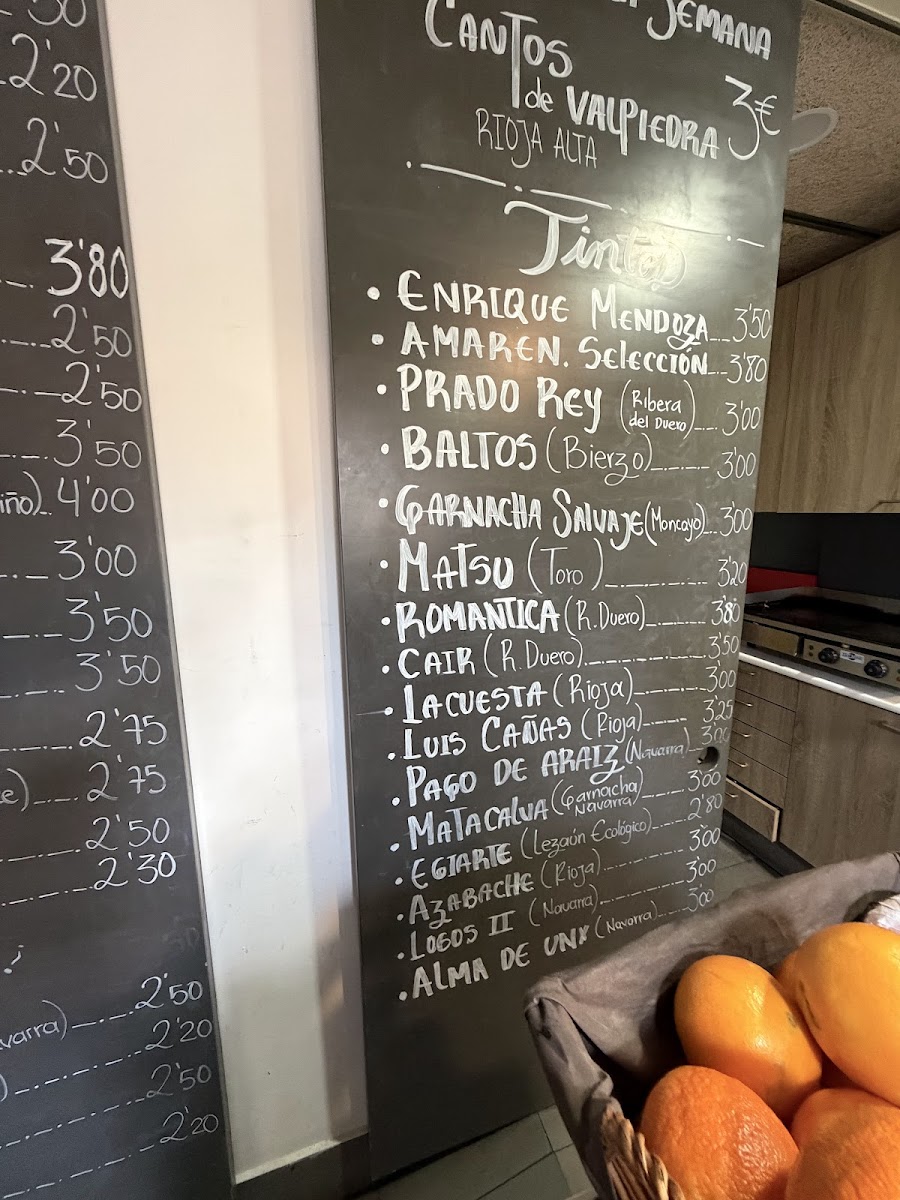 2'20
2'50
3'80
2'50
2'50
3'50
iño) 4'00
3'00
3'50
3'50
2'75
2'75
2'50
2'30
2'50
varra) 2'20
2'50
2'20
SEMANA
CANTOS
de VALPIEDRA 3€
RIOJA ALTA
Tintos
• ENRIQUE MENDOZA 3'50
• AMAREN. SELECCIÓN 3'80
• PRADO REY (Ribera del Duero) 3'00
• BALTOS (Bierzo) 3'00
• GARNACHA SALVAJE (Moncayo) 3'00
• MATSU (Toro) 3'20
• ROMANTICA (R. Duero) 3'80
• CAIR (R. Duero) 3'50
• LACUESTA (Rioja) 3'00
• LUIS CAÑAS (Rioja) 3'25
• PAGO DE ARAIZ (Navarra) 3'00
• MATACALVA (Garnacha Navarra) 3'00
• EGIARTE (Lezaún Ecológico) 2'80
• AZABACHE (Rioja) 3'00
• LOGOS II (Navarra) 3'00
• ALMA DE UNX (Navarra) 3'00